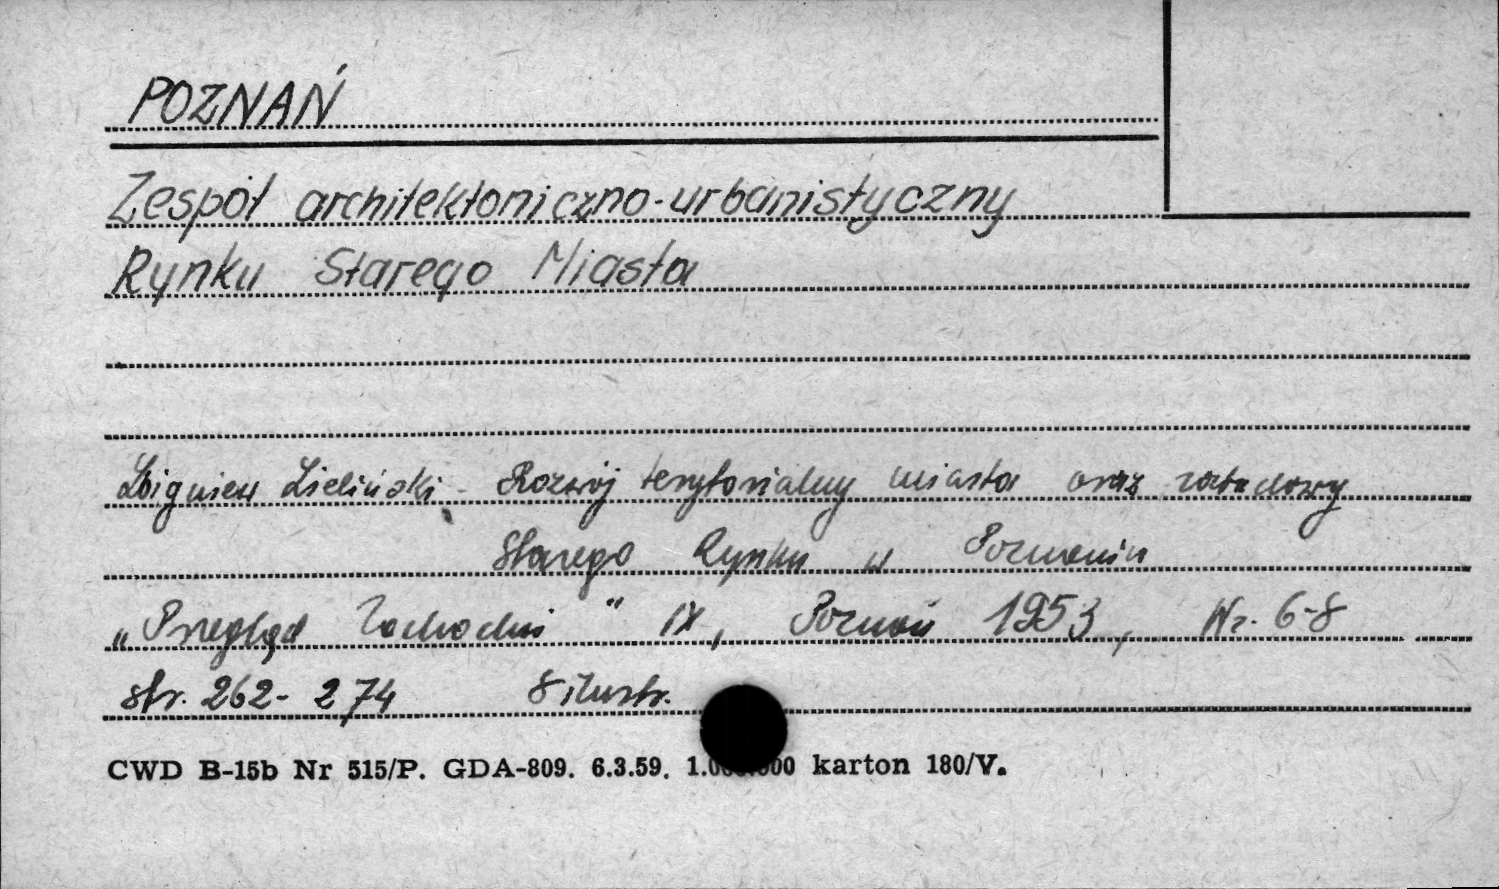 POZNAŃ
Zespół architektoniczno-urbanistyczny
Rynku Starego Miasta
Zbigniew Zieliński - Rozwój terytorialny miasta oraz zabudowy
Starego Rynku w Poznaniu
„Przegląd Zachodni" IX, Poznań 1953, Nr. 6-8
str. 262-274 8 ilustr.
CWD B-15b Nr 515/P. GDA-809. 6.3.59. 1.000.000 karton 180/V.